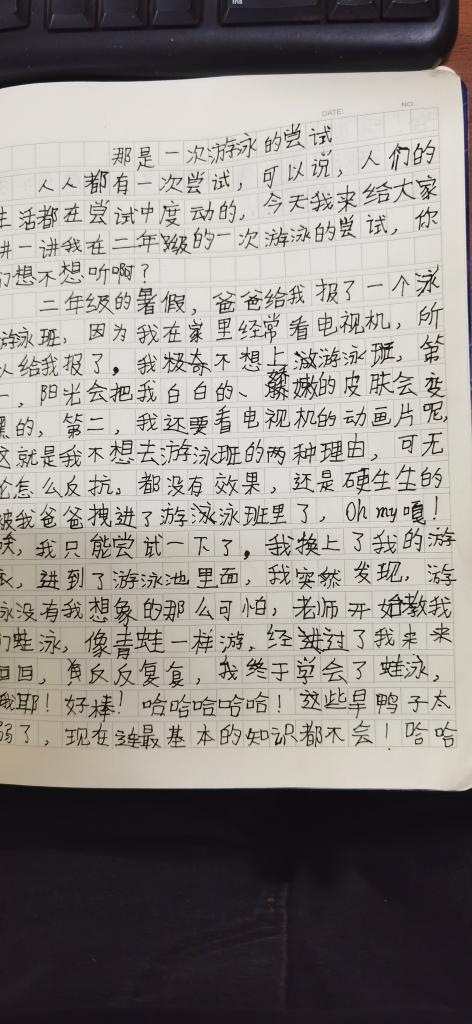 Ins
DATE:
NO.
那是一次游泳的尝试
人人都有一次尝试，可以说，人们的
生活都在尝试中度动的，今天我来给大家
讲一讲我在二年级的一次游泳的尝试，你
们想不想听啊？
二年级的暑假，爸爸给我报了一个泳
游泳班，因为我在家里经常看电视机，所
以给我报了，我极奇不想上游泳班，第
一，阳光会把我白白的、嫩的皮肤会变
黑的，第二，我还要看电视机的动画片呢，
这就是我不想去游泳班的两种理由，可无
论怎么反抗。都没有效果，还是硬生生的
被我爸爸拽进了游泳泳班里了，Oh my嘎！
唉，我只能尝试一下了，我换上了我的游
衣，进到了游泳池里面，我突然发现，游
泳没有我想象的那么可怕，老师开始教我
们蛙泳，像青蛙一样游，经过了我来来
回回，反反复复，我终于学会了蛙泳，
我耶！好棒！哈哈哈哈哈！这些旱鸭子太
弱了，现在连最基本的知识都不会！哈哈